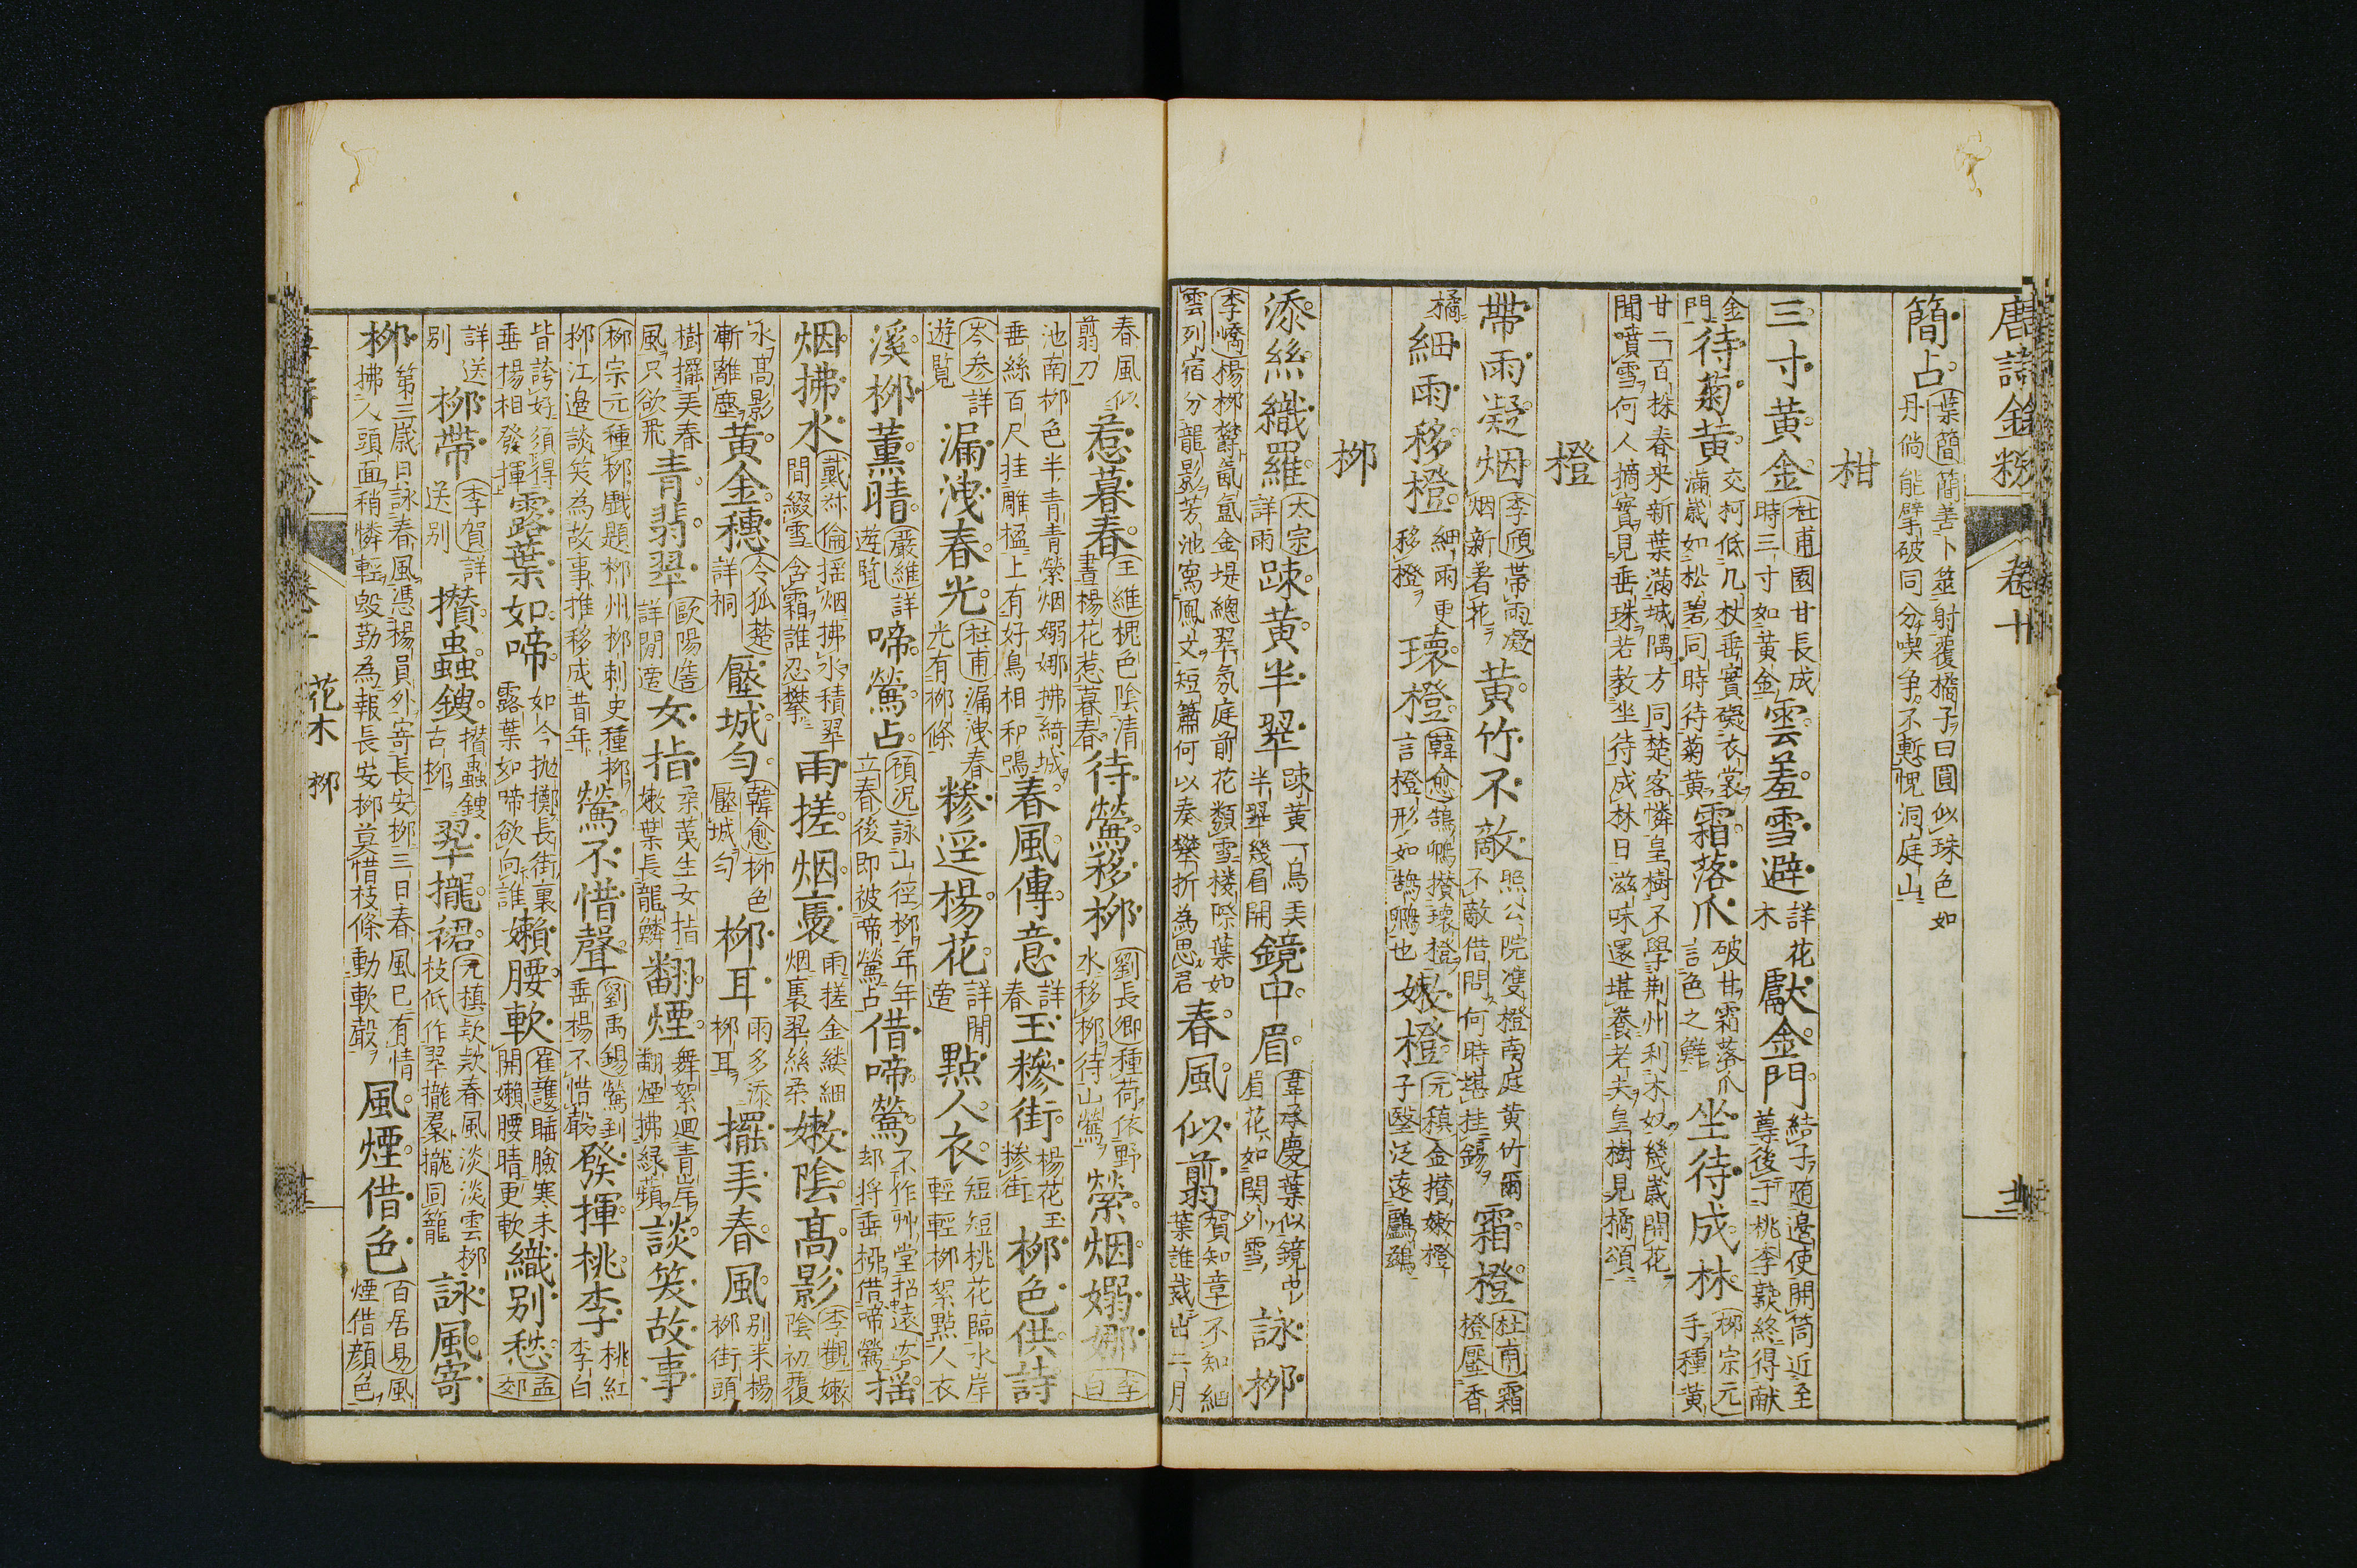 唐詩金粉 卷十
簡占 葉簡 簡善卜筮射覆橘子曰圓似珠色如丹倘能擘破同分喫爭不慙愧洞庭山
柑
三寸黃金 杜甫 園甘長成時三寸如黃金 雲羞雪避 詳花木 獻金門 結子隨邊使開筒近至尊後于桃李熟終得献
金門 待菊黃 交柯低几杖垂實礙衣裳滿歲如松碧同時待菊黃 霜落爪 破甘霜落爪言色之鮮 坐待成林 柳宗元 手種黃
甘二百株春来新葉滿城隅方同楚客憐皇樹不學荆州利木奴幾歲開花聞噴雪何人摘實見垂珠若教坐待成林日滋味還堪養老夫 皇樹見橘頌
橙
帶雨凝烟 李頎 帶雨凝烟新著花 黃竹不敵 照公院雙橙南庭黃竹爾不敵借問何時堪挂錫 霜橙 杜甫 霜橙壓香
橘 細雨移橙 細雨更移橙 瓌橙 韓愈 鵠鵃攢瓌橙言橙形如鵠鵃也 嫩橙 元稹 金攢嫩橙子瑿泛遠鷗鶿
柳
添絲織羅 太宗 詳雨 踈黃半翠 踈黃一鳥弄半翠幾眉開 鏡中眉 韋承慶 葉似鏡中眉花如関外雪 詠柳
李嶠 楊柳欝氤氳金堤總翠氛庭前花類雪樓際葉如雲列宿分龍影芳池寫鳳文短簫何以奏攀折為思君 春風似剪 賀知章 不知細葉誰裁出二月
春風似翦刀 惹暮春 王維 槐色陰清晝楊花惹暮春 待鶯移柳 劉長卿 種荷依野水移柳待山鶯 縈烟嫋娜 李白
池南柳色半青青縈烟嫋娜拂綺城垂絲百尺挂雕楹上有好鳥相和鳴 春風傳意 詳春 玉糝街 楊花玉糝街 柳色供詩
岑参 詳遊覽 漏洩春光 杜甫 漏洩春光有柳條 糝逕楊花 詳閒適 點人衣 短短桃花臨水岸輕輕柳絮點人衣
溪柳薰晴 嚴維 詳遊覽 啼鶯占 顧況 詠山徑柳年年立春後即被啼鶯占 借啼鶯 不作艸堂招遠客却将垂柳借啼鶯 揺
烟拂水 戴叔倫 揺烟拂水積翠間綴雪含霜誰忍攀 雨搓烟裛 雨搓金縷細烟裛翠絲柔 嫩陰高影 李觀 嫩陰初覆
水高影漸離塵 黃金穗 令狐楚 詳桐 壓城勻 韓愈 柳色壓城勻 柳耳 雨多添柳耳 擺弄春風 別来楊柳街頭
樹擺弄春風只欲飛 青翡翠 歐陽詹 詳閒適 女指 柔荑生女指嫩葉長龍鱗 翻煙 舞絮迴青岸翻煙拂緑蘋 談笑故事
柳宗元 種柳戲題柳州柳刺史種柳柳江邊談笑為故事推移成昔年 鶯不惜聲 劉禹錫 鶯到垂楊不惜聲 發揮桃李 桃紅李白
皆誇好須得垂楊相發揮 露葉如啼 如今抛擲長街裏露葉如啼欲向誰 嬾腰軟 崔護 睡臉寒未開嬾腰晴更軟 織別愁 孟郊
詳送別 柳帶 李賀 詳送別 攢蟲鏤 攢蟲鏤古柳 翠攏裙 元稹 欵欵春風淡淡雲柳枝低作翠攏裙攏同籠 詠風寄
柳 第三歲日詠春風憑楊員外寄長安柳三日春風已有情拂人頭面稍憐輕殷勤為報長安柳莫惜枝條動軟聲 風煙借色 百居易 風煙借顔色
花木 柳